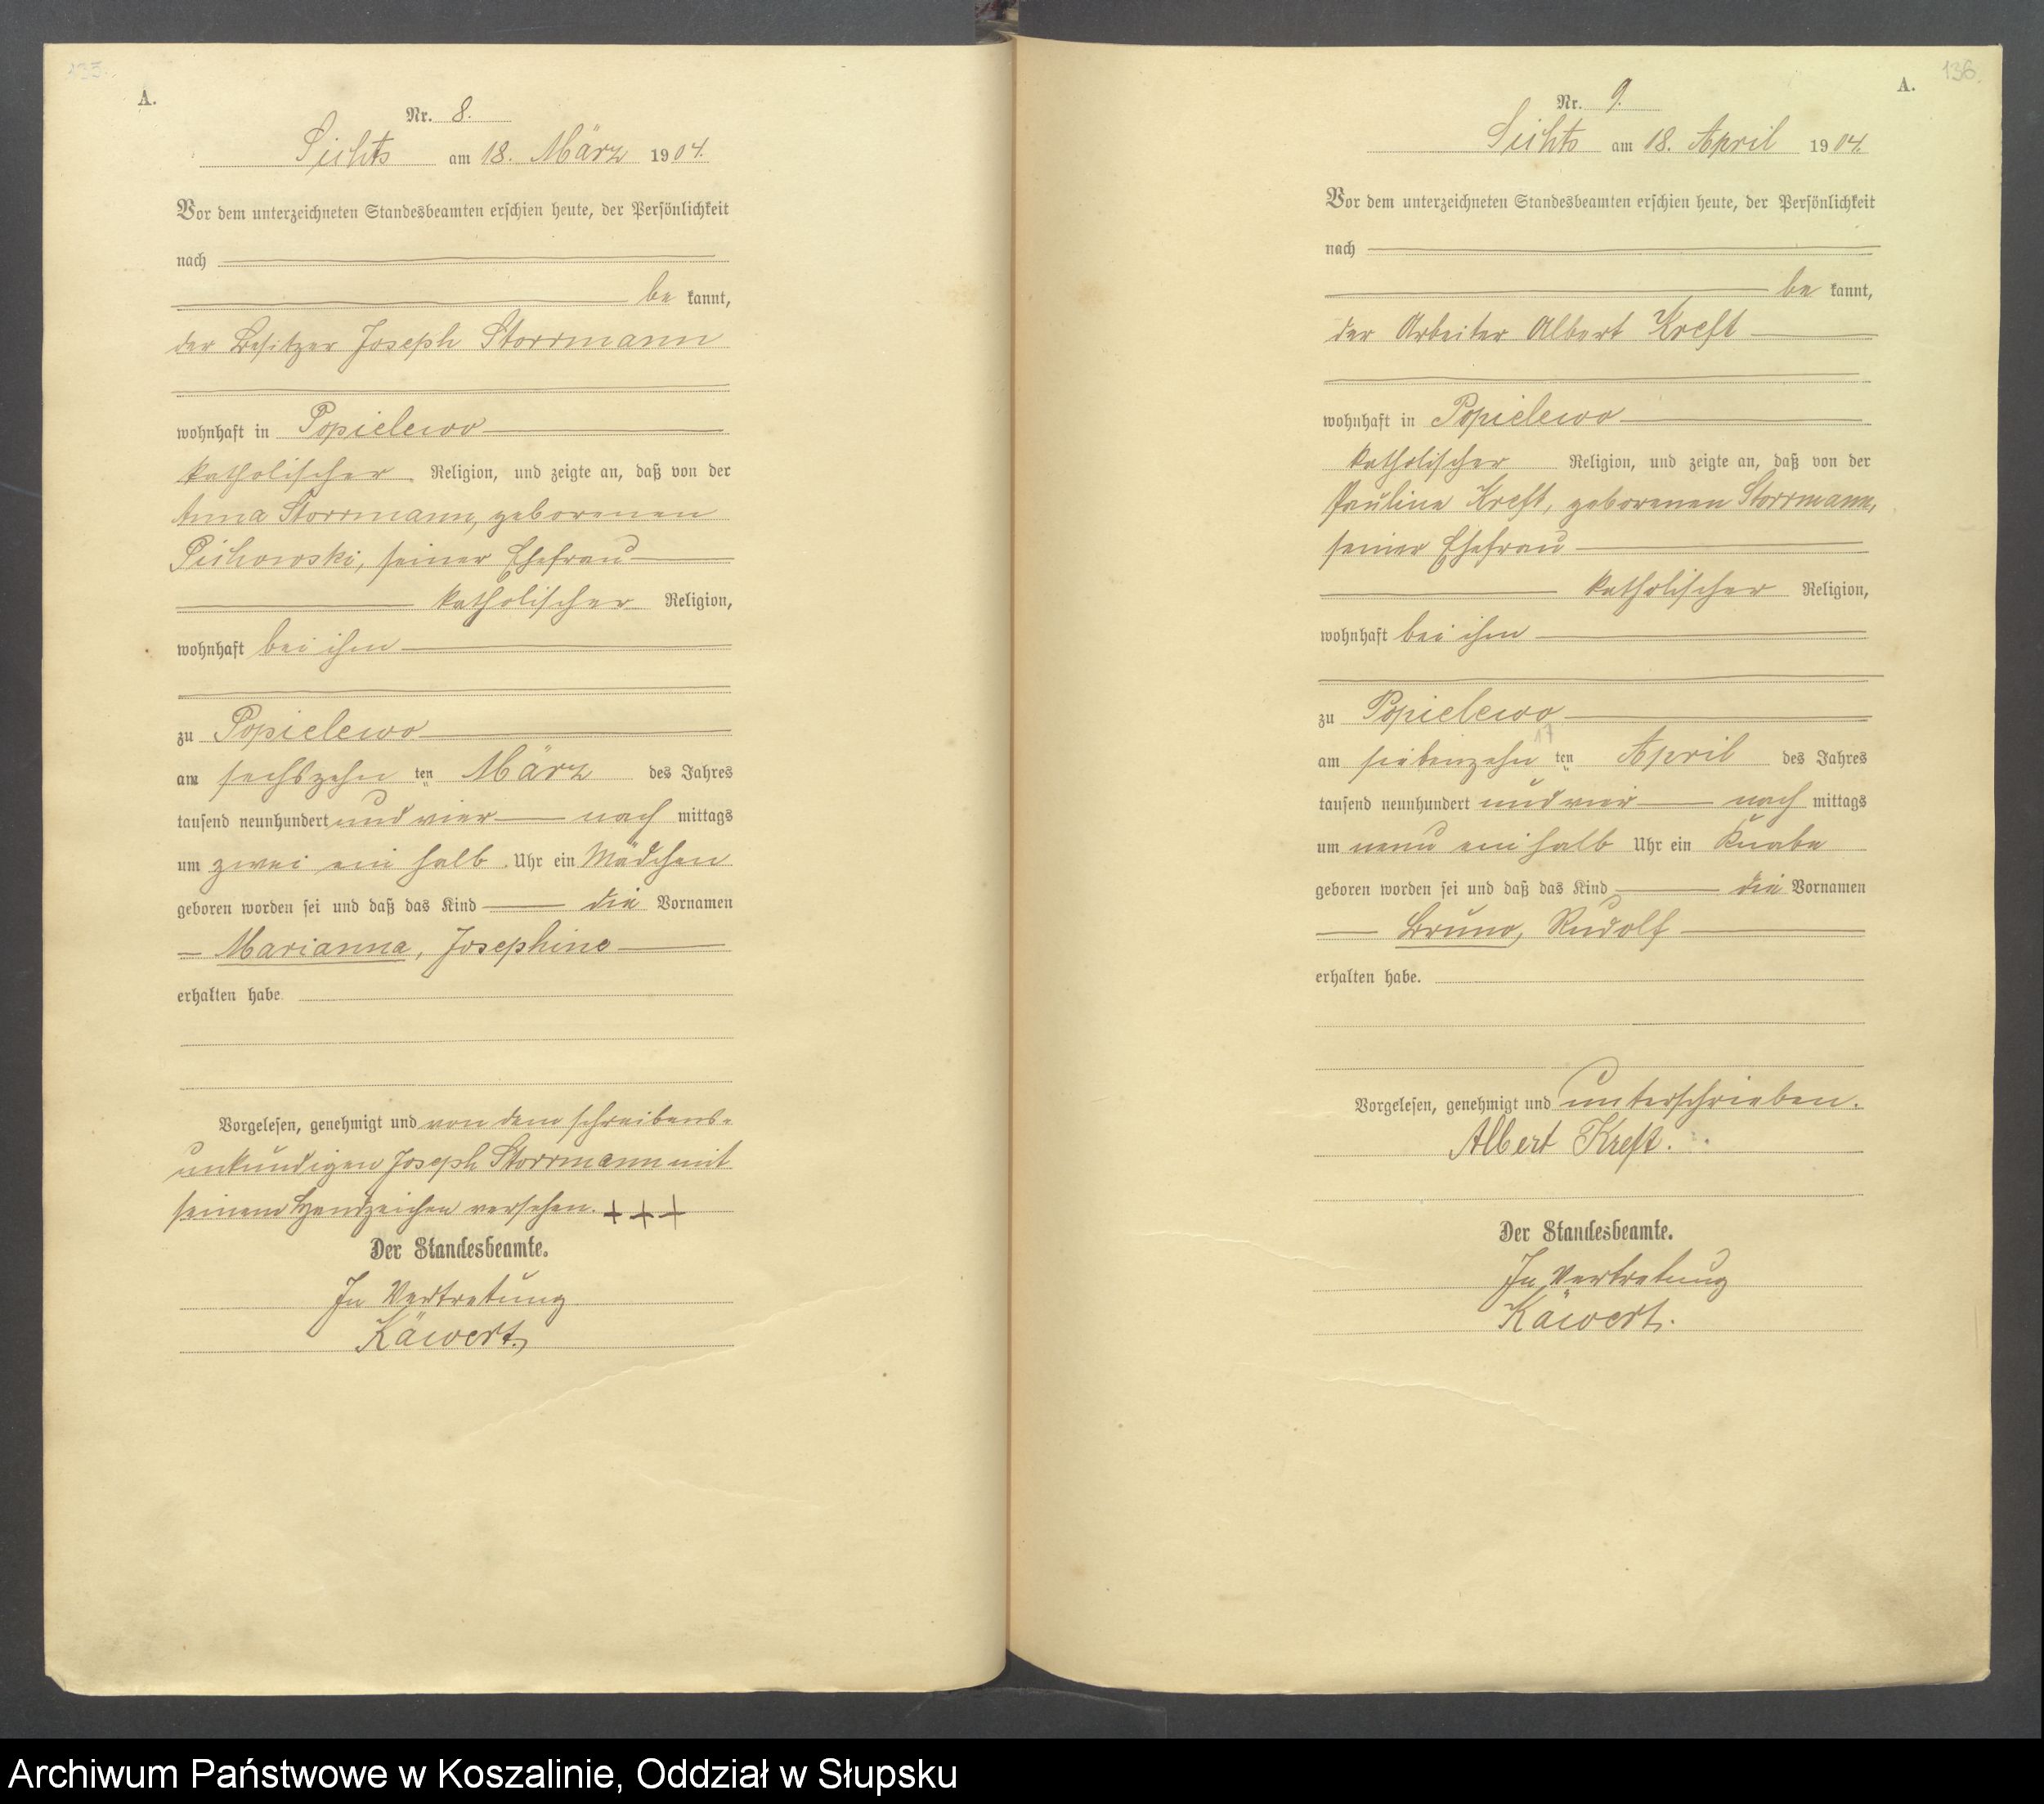 135.
A.
Nr. 8.
Lichts am 18. März 1904.
Vor dem unterzeichneten Standesbeamten erschien heute, der Persönlichkeit
nach
be kannt,
der Besitzer Joseph Storrmann
wohnhaft in Popielewo
katholischer Religion, und zeigte an, daß von der
Anna Storrmann, geborenen
seiner Ehefrau
katholischer Religion,
wohnhaft bei ihm
zu Popielewo
am sechszehn ten März des Jahres
tausend neunhundert und vier nach mittags
um zwei ein halb Uhr ein Mädchen
geboren worden sei und daß das Kind die Vornamen
Marianna, Josephine
erhalten habe.
Vorgelesen, genehmigt und von dem schreibens-
unkundigen Joseph Storrmann mit
seinem Handzeichen versehen. +++
Der Standesbeamte.
In Vertretung
Käwert.
136.
A.
Nr. 9.
Lichts am 18. April 1904.
Vor dem unterzeichneten Standesbeamten erschien heute, der Persönlichkeit
nach
be kannt,
der Arbeiter Albert Kreft
wohnhaft in Popielewo
katholischer Religion, und zeigte an, daß von der
Pauline Kreft, geborenen Storrmann,
seiner Ehefrau
katholischer Religion,
wohnhaft bei ihm
zu Popielewo
17
am siebenzehn ten April des Jahres
tausend neunhundert und vier nach mittags
um neun ein halb Uhr ein Knabe
geboren worden sei und daß das Kind die Vornamen
Bruno, Rudolf
erhalten habe.
Vorgelesen, genehmigt und unterschrieben.
Albert Kreft.
Der Standesbeamte.
In Vertretung
Käwert.
Archiwum Państwowe w Koszalinie, Oddział w Słupsku